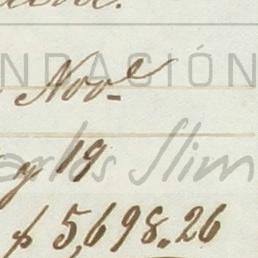 NDACIÓN
Nov.e
y 19
Carlos Slim
$ 5,698.26